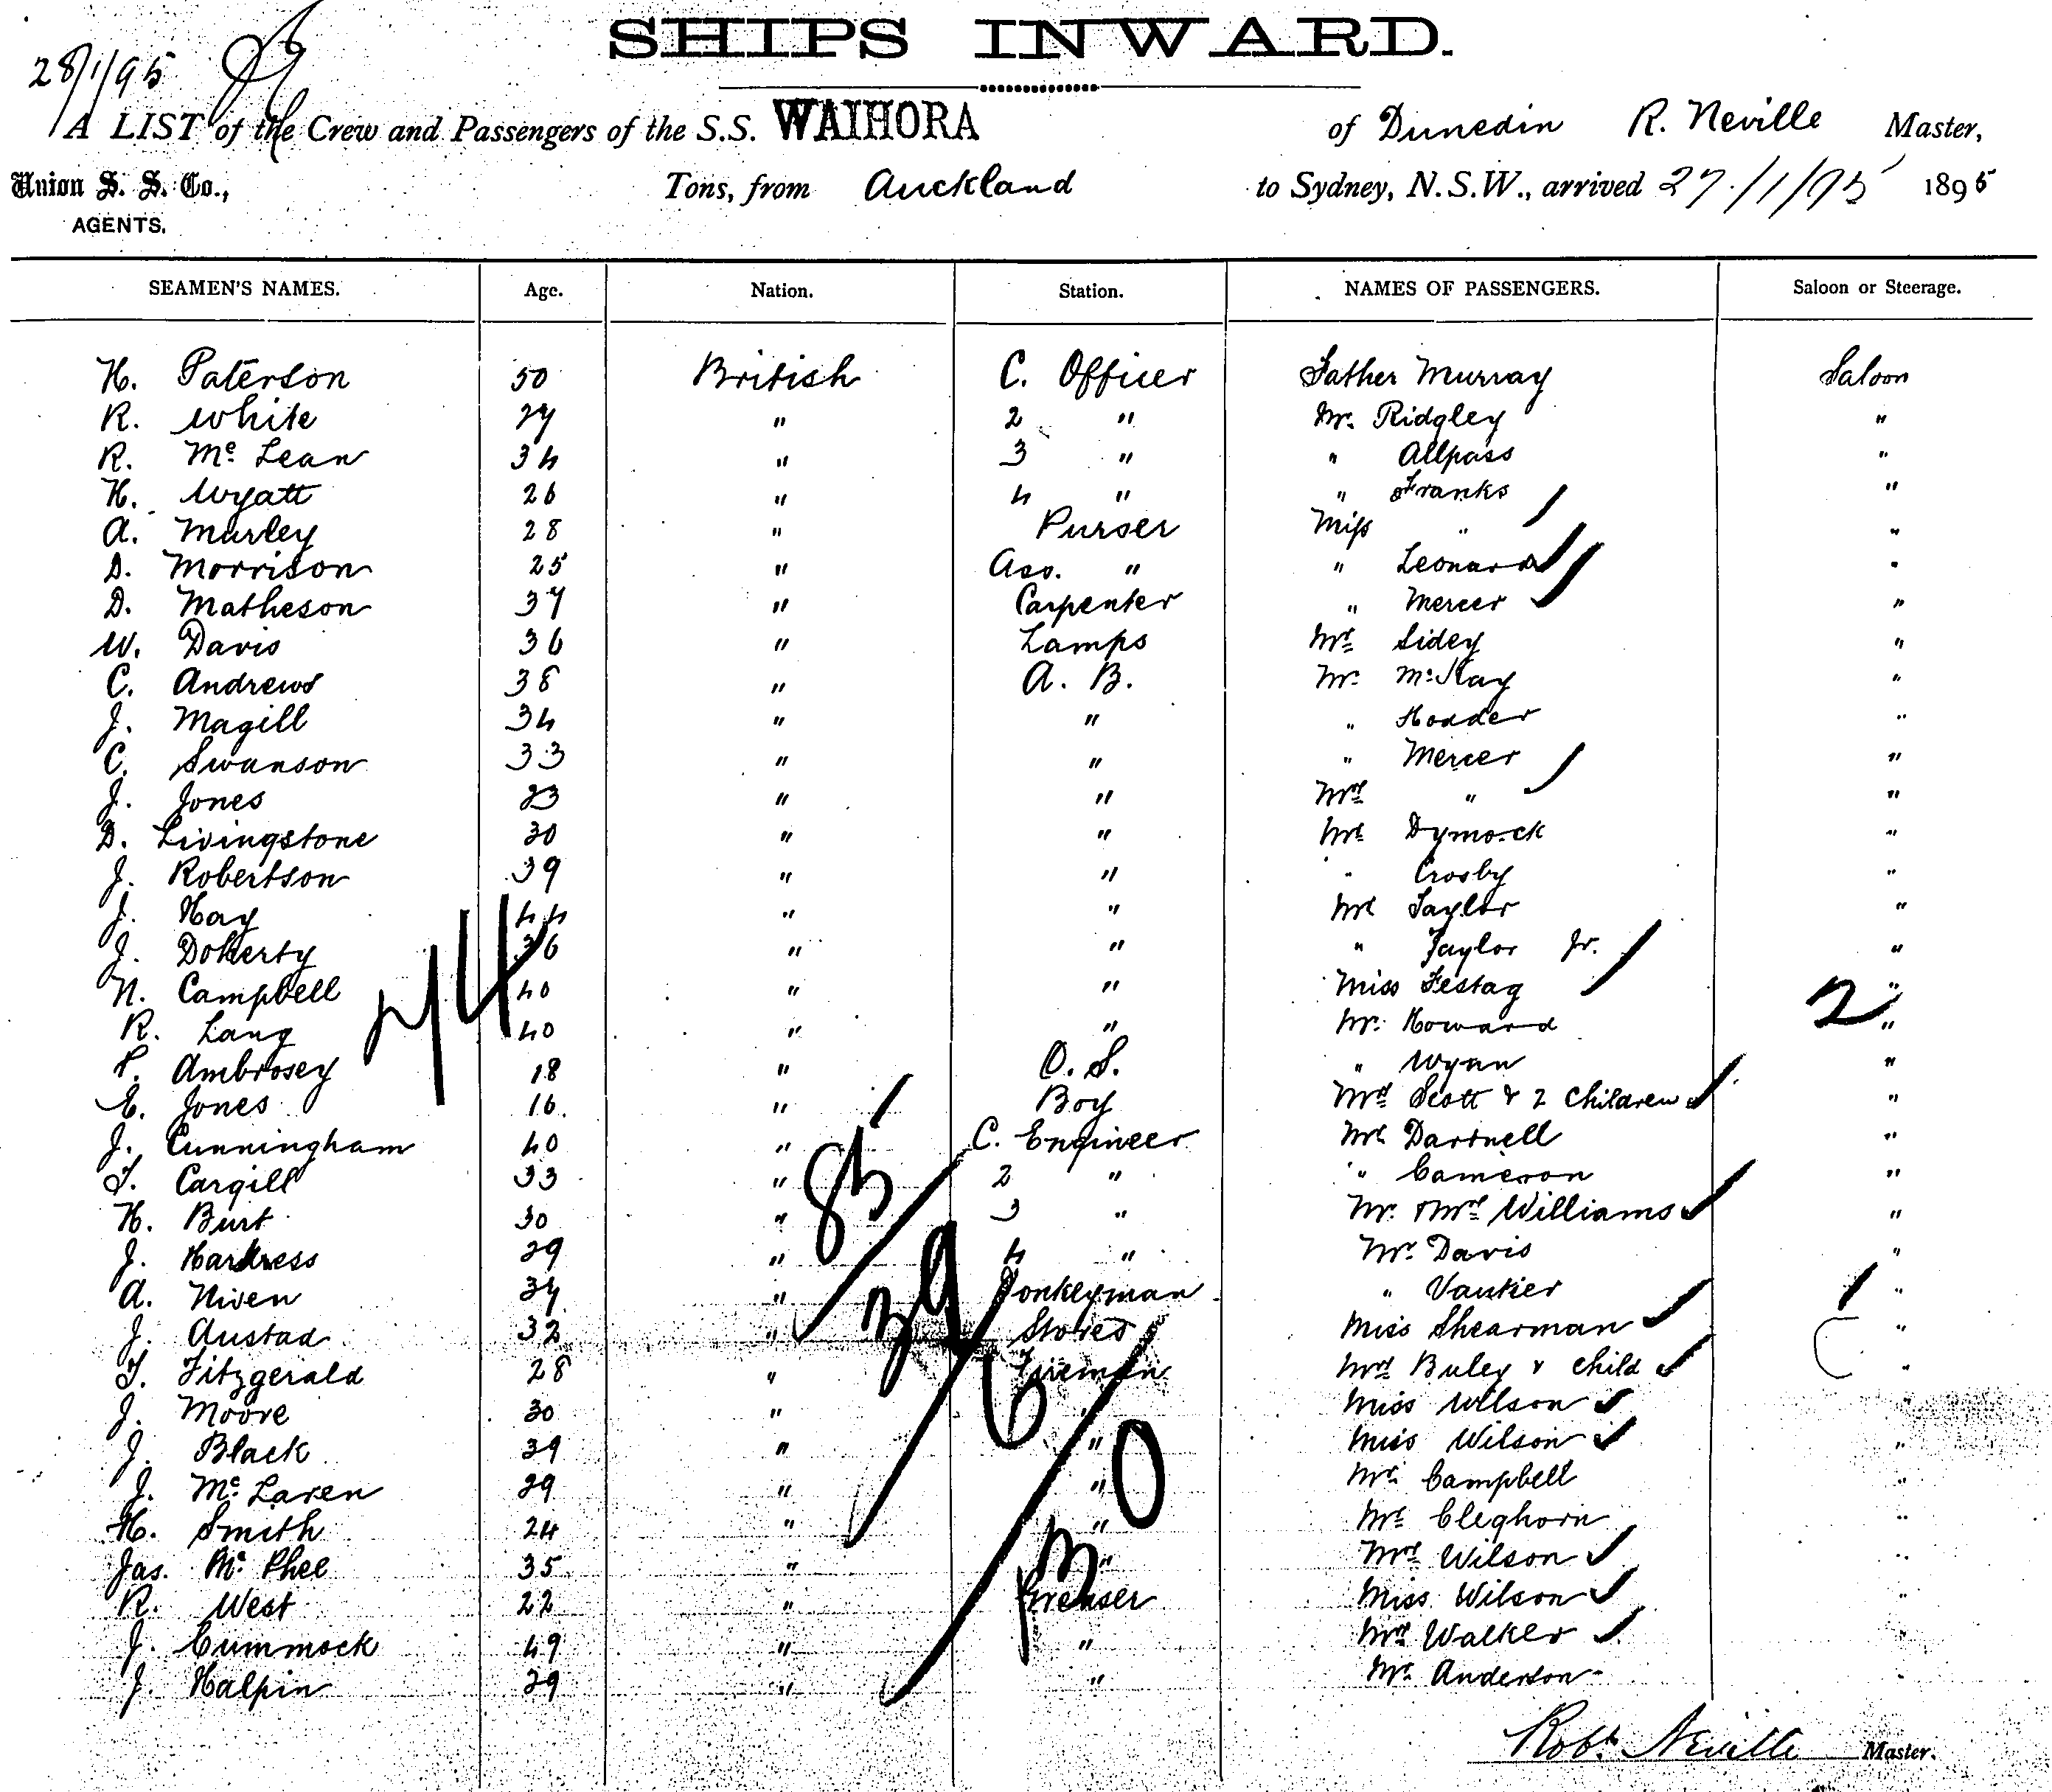 SHIPS INWARD.
28/1/95
A LIST of the Crew and Passengers of the S.S. WAIHORA of Dunedin R. Neville Master,
Union S. S. Co., Tons, from Auckland to Sydney, N.S.W., arrived 27/1/95 1895
AGENTS.
SEAMEN'S NAMES. Age. Nation. Station. NAMES OF PASSENGERS. Saloon or Steerage.
H. Paterson 50 British C. Officer Father Murray Saloon
R. White 27 " 2 " Mr. Ridgley "
R. Mc Lean 34 " 3 " " Allpass "
H. Wyatt 26 " 4 " " Franks "
A. Murley 28 " Purser Miss " "
D. Morrison 25 " Ass. " " Leonard "
D. Matheson 37 " Carpenter " Mercer "
W. Davis 36 " Lamps Mr Sidey "
C. Andrews 38 " A. B. Mr. McKay "
J. Magill 34 " " " Hodder "
C. Swanson 33 " " " Mercer "
J. Jones 23 " " Mrs " "
D. Livingstone 30 " " Mr Dymock "
J. Robertson 39 " " " Crosby "
J. Hay 44 " " Mr Taylor "
J. Doherty 36 " " " Taylor Jr. "
N. Campbell 40 " " Miss Festag "
R. Lang 40 " " Mr. Howard 2 "
P. Ambrosey 18 " O. S. " Wynn "
E. Jones 16. " Boy Mrs Scott & 2 Children "
J. Cunningham 40 " C. Engineer Mr Dartnell "
T. Cargill 33 " 2 " " Cameron "
H. Burt 30 " 3 " Mr. & Mrs Williams "
J. Hardress 29 " 4 " Mr. Davis "
A. Niven 34 " Donkeyman " Vautier "
J. Austad 32 " Stores Miss Shearman "
T. Fitzgerald 28 " Fireman Mrs Buley & child "
J. Moore 30 " " Miss Wilson "
J. Black 39 " " Miss Wilson "
J. Mc Laren 29 " " Mr. Campbell "
H. Smith 24 " " Mr Cleghorn "
Jas. Mc Phee 35 " " Mrs Wilson "
R. West 22 " Greaser Miss Wilson "
J. Cummock 49 " " Mrs Walker "
J. Halpin 29 " " Mr. Anderson "
Robt. Neville Master.